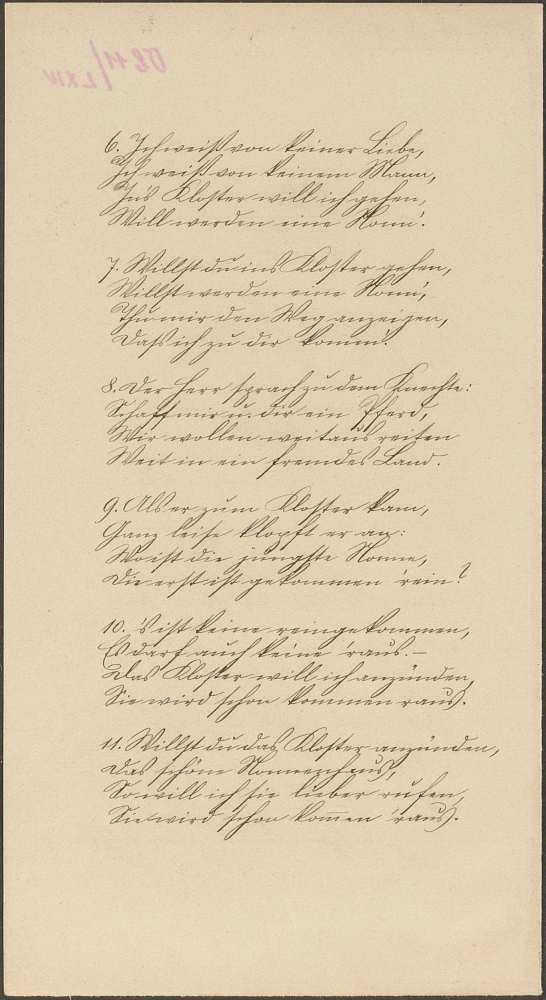 6. Ich weiß von keiner Liebe,
Ich weiß von keinem Mann,
In's Kloster will ich gehen,
Will werden eine Nonn'.
7. Willst du ins Kloster gehen,
Willst werden eine Nonn',
Thu mir den Weg anzeigen,
Daß ich zu dir komm'.
8. Der Herr sprach zu dem Knechte:
Schaff mir u. dir ein Pferd,
Wir wollen weitaus reiten
Weit in ein fremdes Land.
9. Als er zum Kloster kam,
Ganz leise klopft er an:
Wo ist die jüngste Nonne,
Die erst ist gekommen 'rein?
10. 's ist keine reingekommen,
Es darf auch keine 'raus. –
Das Kloster will ich anzünden,
Sie wird schon kommen raus.
11. Willst du das Kloster anzünden,
Das schöne Nonnenhaus,
So will ich sie lieber rufen,
Sie wird schon kom̄en 'raus.